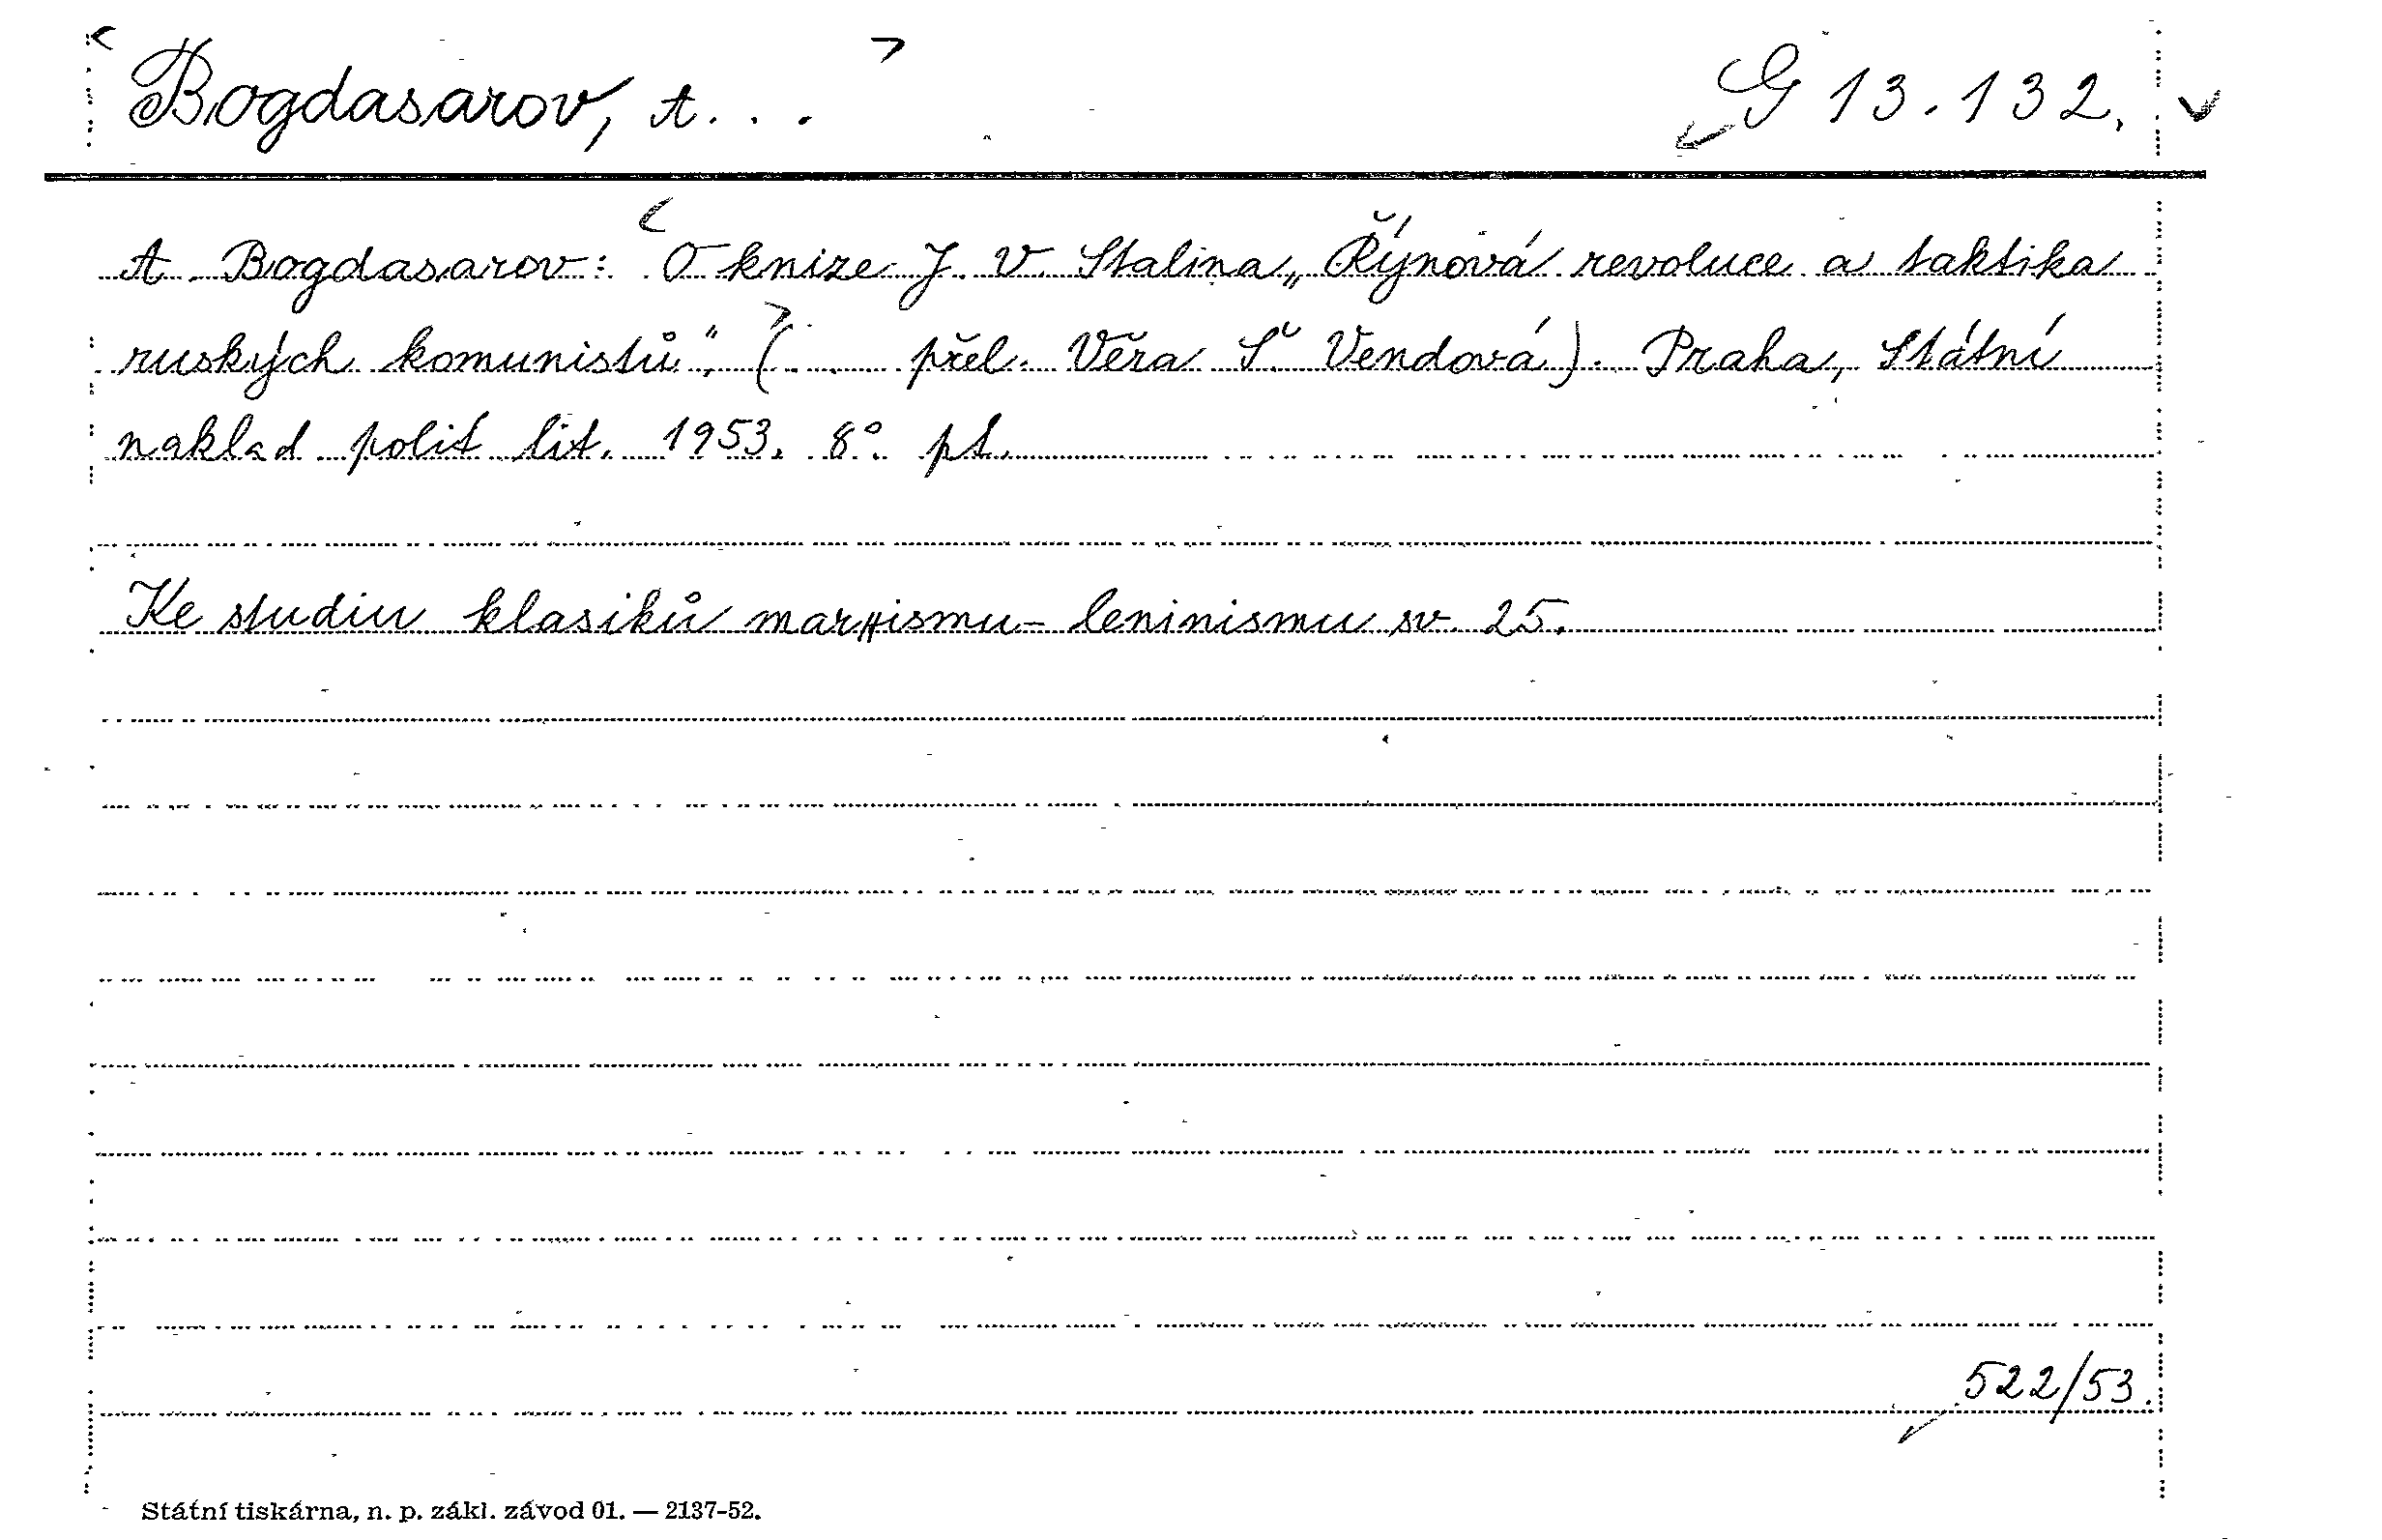 Bogdasarov, A. . .
G 13.132.
A. Bogdasarov: O knize J. V. Stalina „Říjnová revoluce a taktika
ruských komunistů". (. . přel. Věra Š. Vendová). Praha, Státní
naklad polit lit. 1953. 8°. pt.
Ke studiu klasiků marxismu-leninismu sv. 25.
522/53.
Státní tiskárna, n. p. zákl. závod 01. — 2137-52.